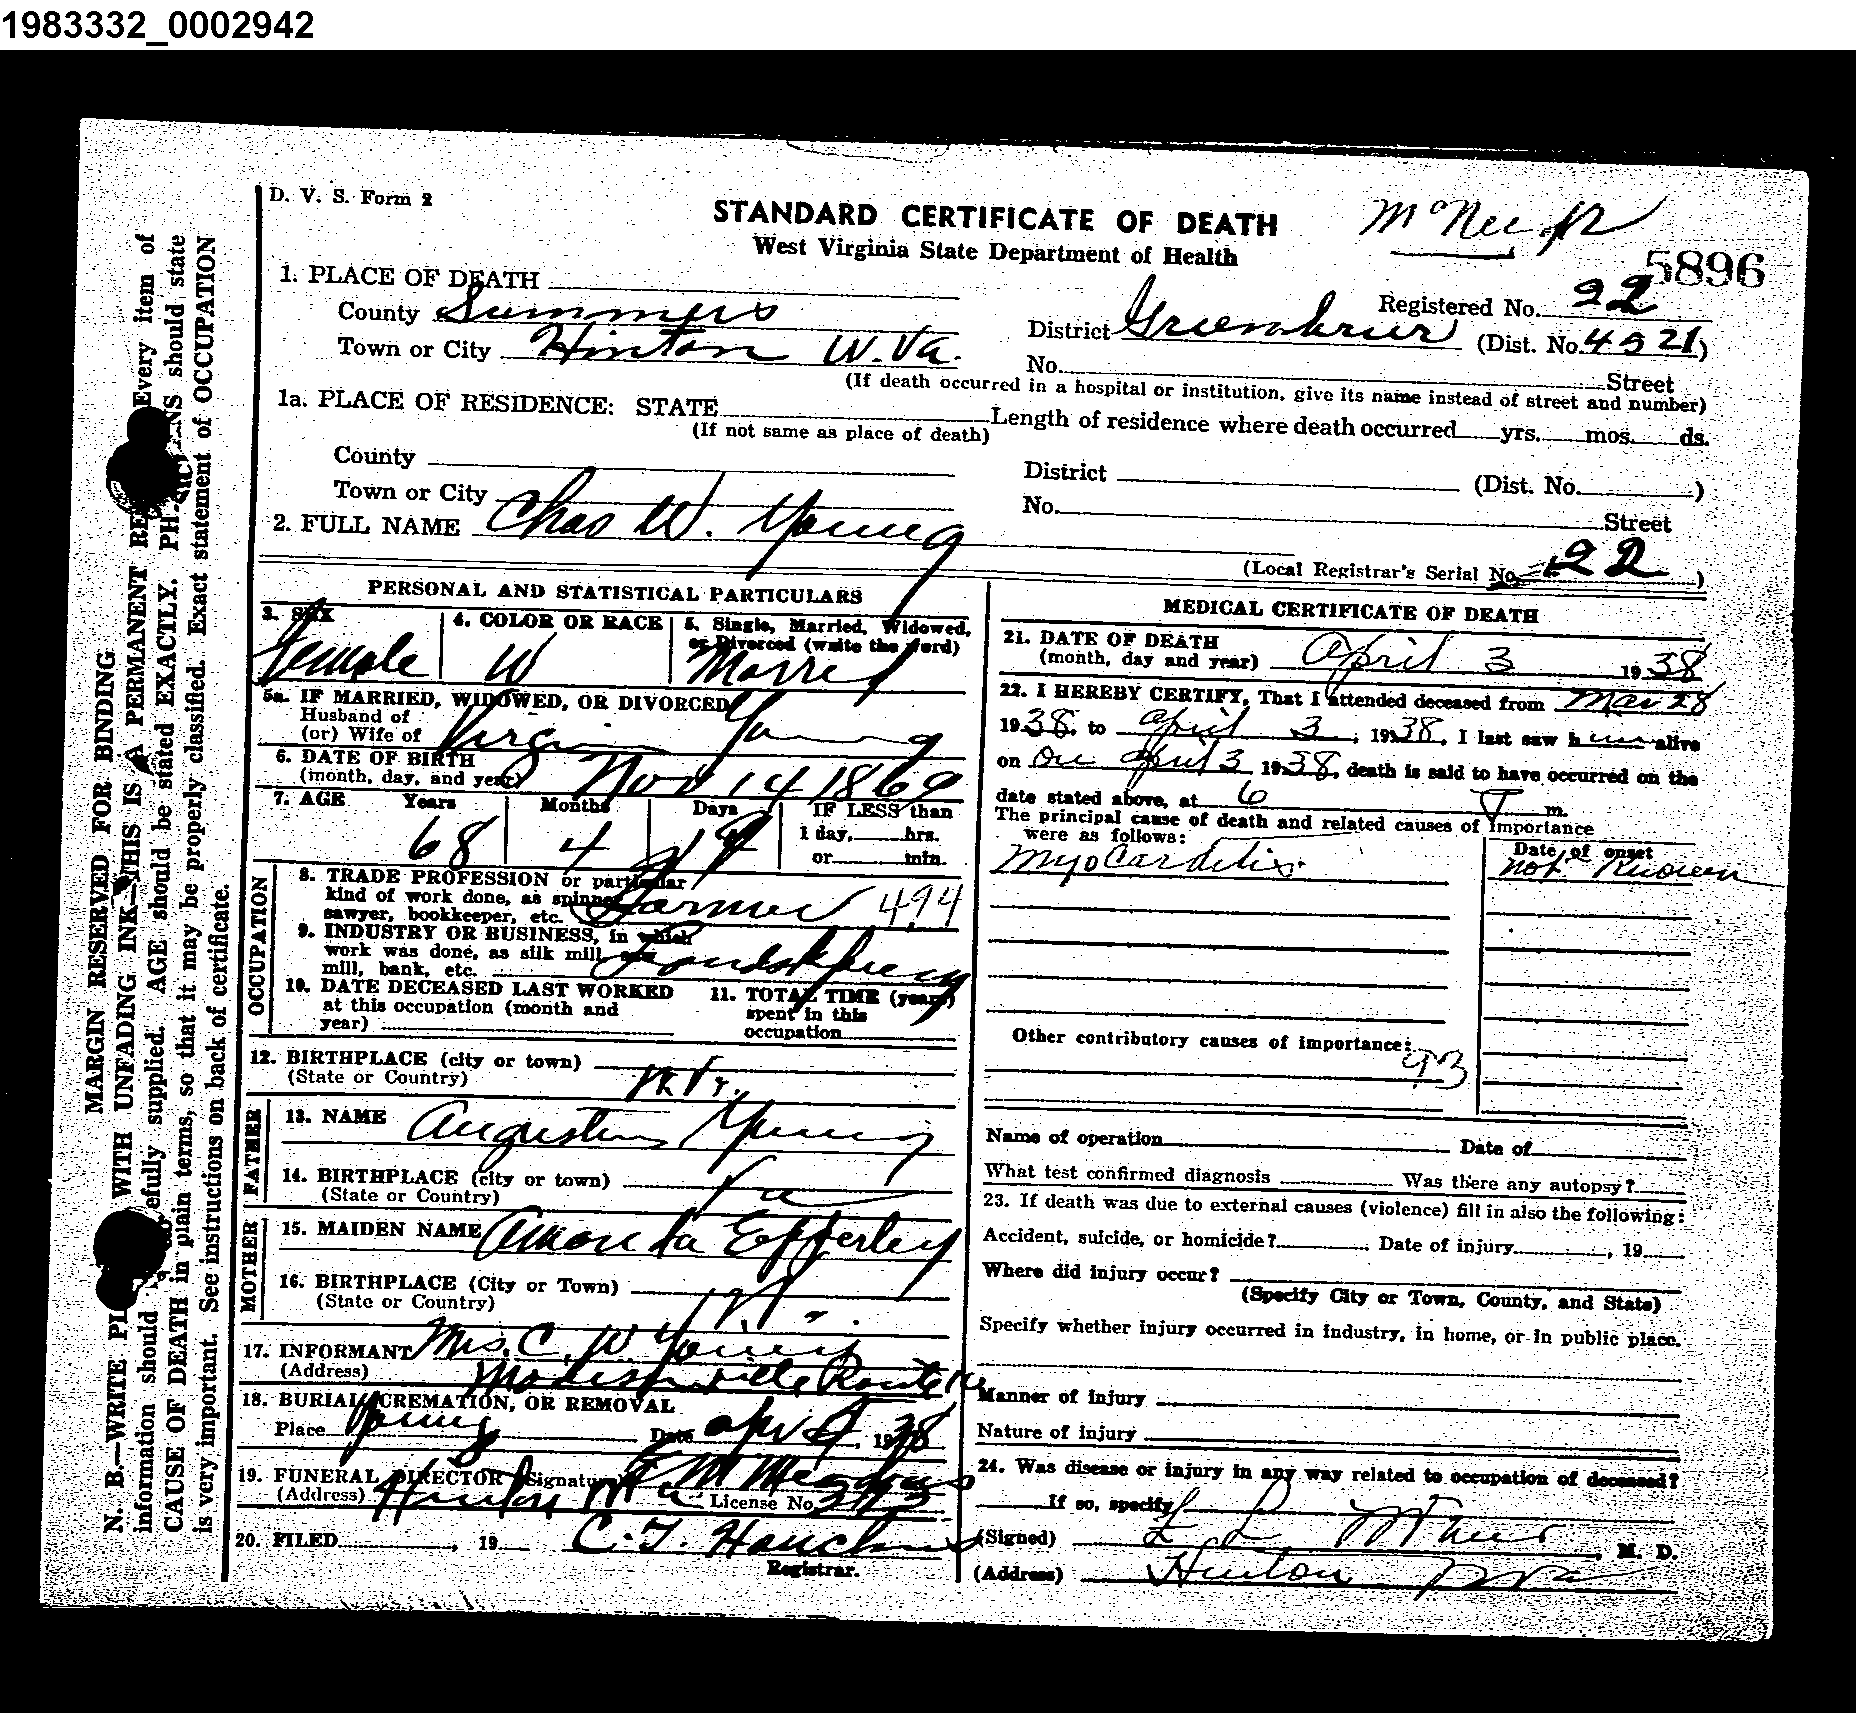 1983332_0002942
D. V. S. Form 2
STANDARD CERTIFICATE OF DEATH
West Virginia State Department of Health
5896
1. PLACE OF DEATH
Registered No. 22
County Summers
District Greenbrier (Dist. No. 4521)
Town or City Hinton W. Va.
No. Street
(If death occurred in a hospital or institution, give its name instead of street and number)
1a. PLACE OF RESIDENCE: STATE
Length of residence where death occurred yrs. mos. ds.
(If not same as place of death)
County
District (Dist. No. )
Town or City
No. Street
2. FULL NAME Chas W. Young
(Local Registrar's Serial No. 22 )
PERSONAL AND STATISTICAL PARTICULARS
3. SEX
Female
4. COLOR OR RACE
W
5. Single, Married, Widowed,
or Divorced (write the word)
Married
5a. IF MARRIED, WIDOWED, OR DIVORCED
Husband of
(or) Wife of Virginia Young
6. DATE OF BIRTH
(month, day, and year) Nov 14 1869
7. AGE Years Months Days IF LESS than
68 4 19
1 day, hrs.
or min.
OCCUPATION
8. TRADE PROFESSION or particular
kind of work done, as spinner
sawyer, bookkeeper, etc. Farmer 494
9. INDUSTRY OR BUSINESS, in which
work was done, as silk mill, saw
mill, bank, etc.
10. DATE DECEASED LAST WORKED
at this occupation (month and
year)
11. TOTAL TIME (years)
spent in this
occupation
12. BIRTHPLACE (city or town)
(State or Country) W Va.
FATHER
13. NAME Augustus Young
14. BIRTHPLACE (city or town)
(State or Country) Va
MOTHER
15. MAIDEN NAME Amanda Epperley
16. BIRTHPLACE (City or Town)
(State or Country)
17. INFORMANT Mrs. C. W. Young
(Address) Route
18. BURIAL, CREMATION, OR REMOVAL
Place Young Date Apr 1938
19. FUNERAL DIRECTOR (Signature) Meadows
(Address) Hinton W Va License No.
20. FILED , 19
Registrar.
MEDICAL CERTIFICATE OF DEATH
21. DATE OF DEATH
(month, day and year) April 3 1938
22. I HEREBY CERTIFY, That I attended deceased from Mar 28
1938, to April 3, 1938, I last saw h im alive
on on April 3 1938, death is said to have occurred on the
date stated above, at 6 P m.
The principal cause of death and related causes of importance
were as follows:
Date of onset
Myocarditis. not Known
Other contributory causes of importance:
93
Name of operation Date of
What test confirmed diagnosis Was there any autopsy?
23. If death was due to external causes (violence) fill in also the following:
Accident, suicide, or homicide? Date of injury , 19
Where did injury occur?
(Specify City or Town, County, and State)
Specify whether injury occurred in industry, in home, or in public place.
Manner of injury
Nature of injury
24. Was disease or injury in any way related to occupation of deceased?
If so, specify
(Signed) , M. D.
(Address) Hinton W Va
MARGIN RESERVED FOR BINDING
N. B.—WRITE PL WITH UNFADING INK—THIS IS A PERMANENT RE Every item of
information should efully supplied. AGE should be stated EXACTLY. PHYSICIANS should state
CAUSE OF DEATH in plain terms, so that it may be properly classified. Exact statement of OCCUPATION
is very important. See instructions on back of certificate.